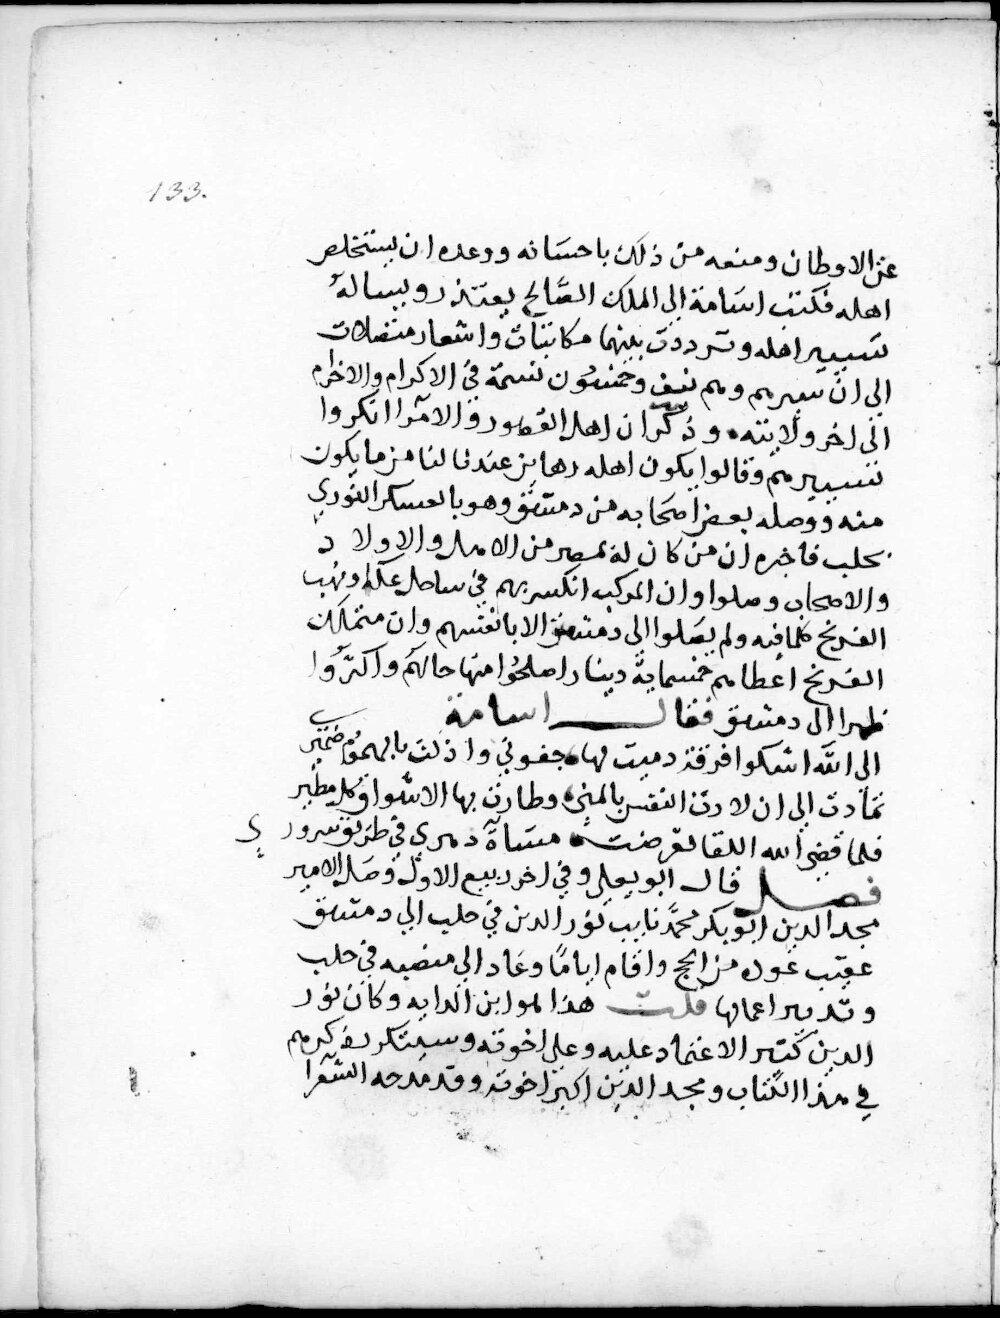 133.
عن الاوطان ومنعه من ذلك باحسانه ووعده ان يستخلص
اهله فكتب اسامة الى الملك الصالح يعتذر ويساله
تسيير اهله وترددت بينهما مكاتبات واشعار متصلات
الى ان سيرهم وهم نيف وخمسون نسمة في الاكرام والاحترام
الى اخر ولايته وذكر ان اهل القصور والامرا انكروا
تسييرهم وقالوا يكون اهله رهاين عندنا لنامن ما يكون
منه ووصله بعض اصحابه من دمشق وهو بالعسكر النوري
بحلب فاخبره ان من كان له بمصر من الاهل والاولاد
والاصحاب وصلوا وان المركب انكسر بهم في ساحل عكا ونهب
الفرنج كلما فيه ولم يصلوا الى دمشق الا بانفسهم وان متملك
الفرنج اعطاهم خمسماية دينار اصلحوا منها حالهم واكتروا
ظهرا الى دمشق فقال اسامة
الى الله اشكوا فرقة دميت لها جفوني واذكت بالهموم ضمير
تمادت الى ان لادت النفس بالمنى وطارت بها الاشواق كل مطير
فلما قضى الله اللقا تعرضت مساآة دهري في طريق سروري
فصل قال ابو يعلي وفي اخر ربيع الاول وصل الامير
مجد الدين ابو بكر محمد نايب نور الدين في حلب الى دمشق
عقيب عوده من الحج واقام اياما وعاد الى منصبه في حلب
وتدبير اعمالها قلت هذا هو ابن الدايه وكان نور
الدين كثير الاعتماد عليه وعلى اخوته وسيتكرر ذكرهم
في هذا الكتاب ومجد الدين اكبر اخوته وقد مدحه الشعرا